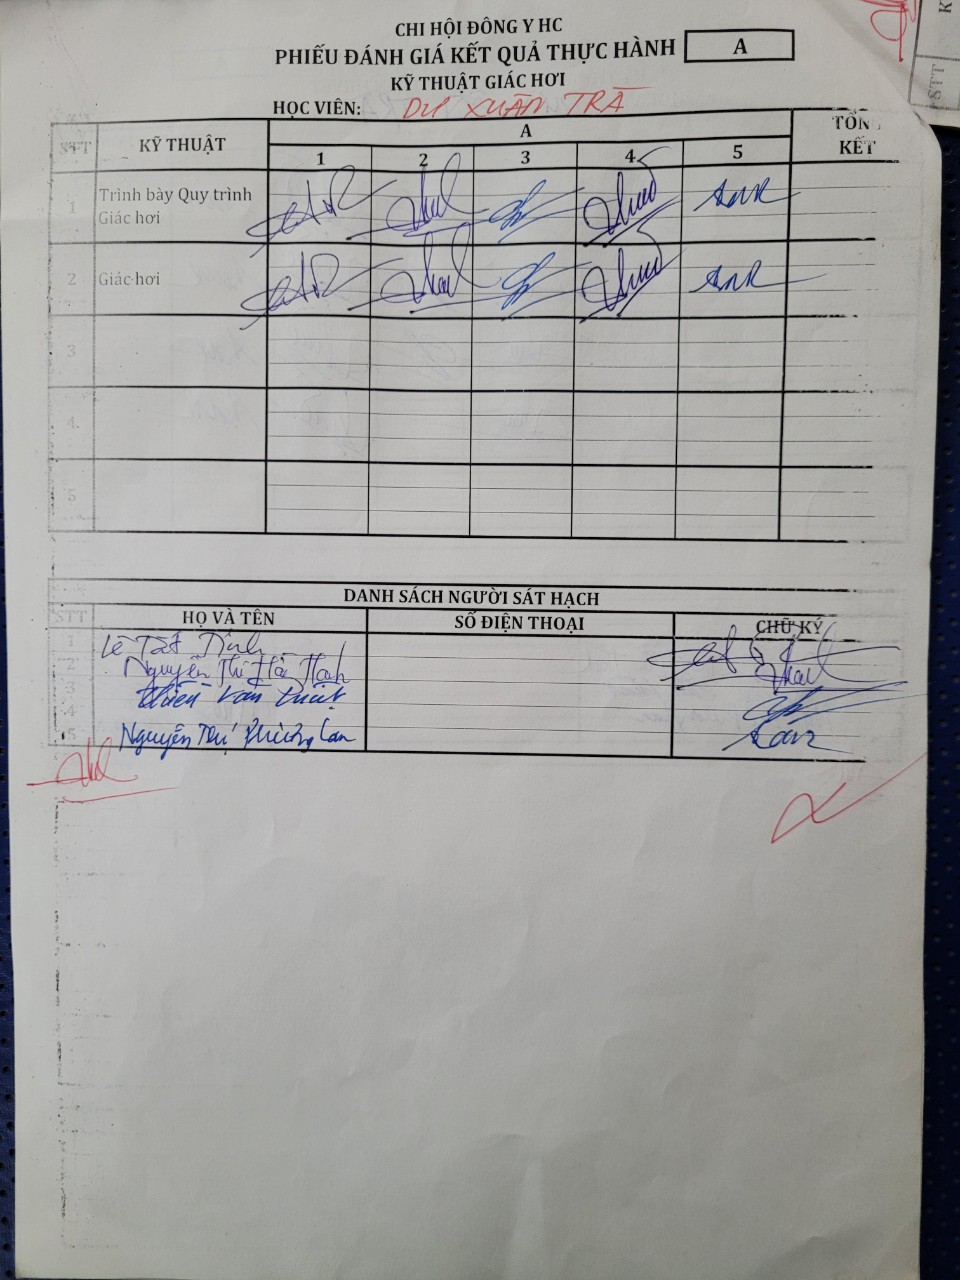 CHI HỘI ĐÔNG Y HC
PHIẾU ĐÁNH GIÁ KẾT QUẢ THỰC HÀNH A
KỸ THUẬT GIÁC HƠI
HỌC VIÊN: DƯ XUÂN TRÀ
STT KỸ THUẬT A TỔNG KẾT
1 2 3 4 5
1 Trình bày Quy trình
Giác hơi
2 Giác hơi
3
4
5
DANH SÁCH NGƯỜI SÁT HẠCH
STT HỌ VÀ TÊN SỐ ĐIỆN THOẠI CHỮ KÝ
1 Lê Tất
2 Nguyễn Thị Hà Thanh
3 Văn
4
5 Nguyễn Thị Phương Lan
STT